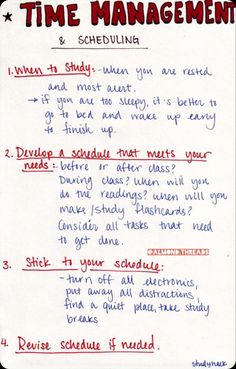 ★ TIME MANAGEMENT
& SCHEDULING
1. When to Study: - when you are rested
and most alert.
→ if you are too sleepy, it's better to
go to bed and wake up early
to finish up.
2. Develop a schedule that meets your
needs: - before or after class?
During class? when will you
do the readings? when will you
make/study flashcards?
Consider all tasks that need
to get done.
3. Stick to your schedule:
- turn off all electronics,
put away all distractions,
find a quiet place, take study
breaks
4. Revise schedule if needed.
studyhack